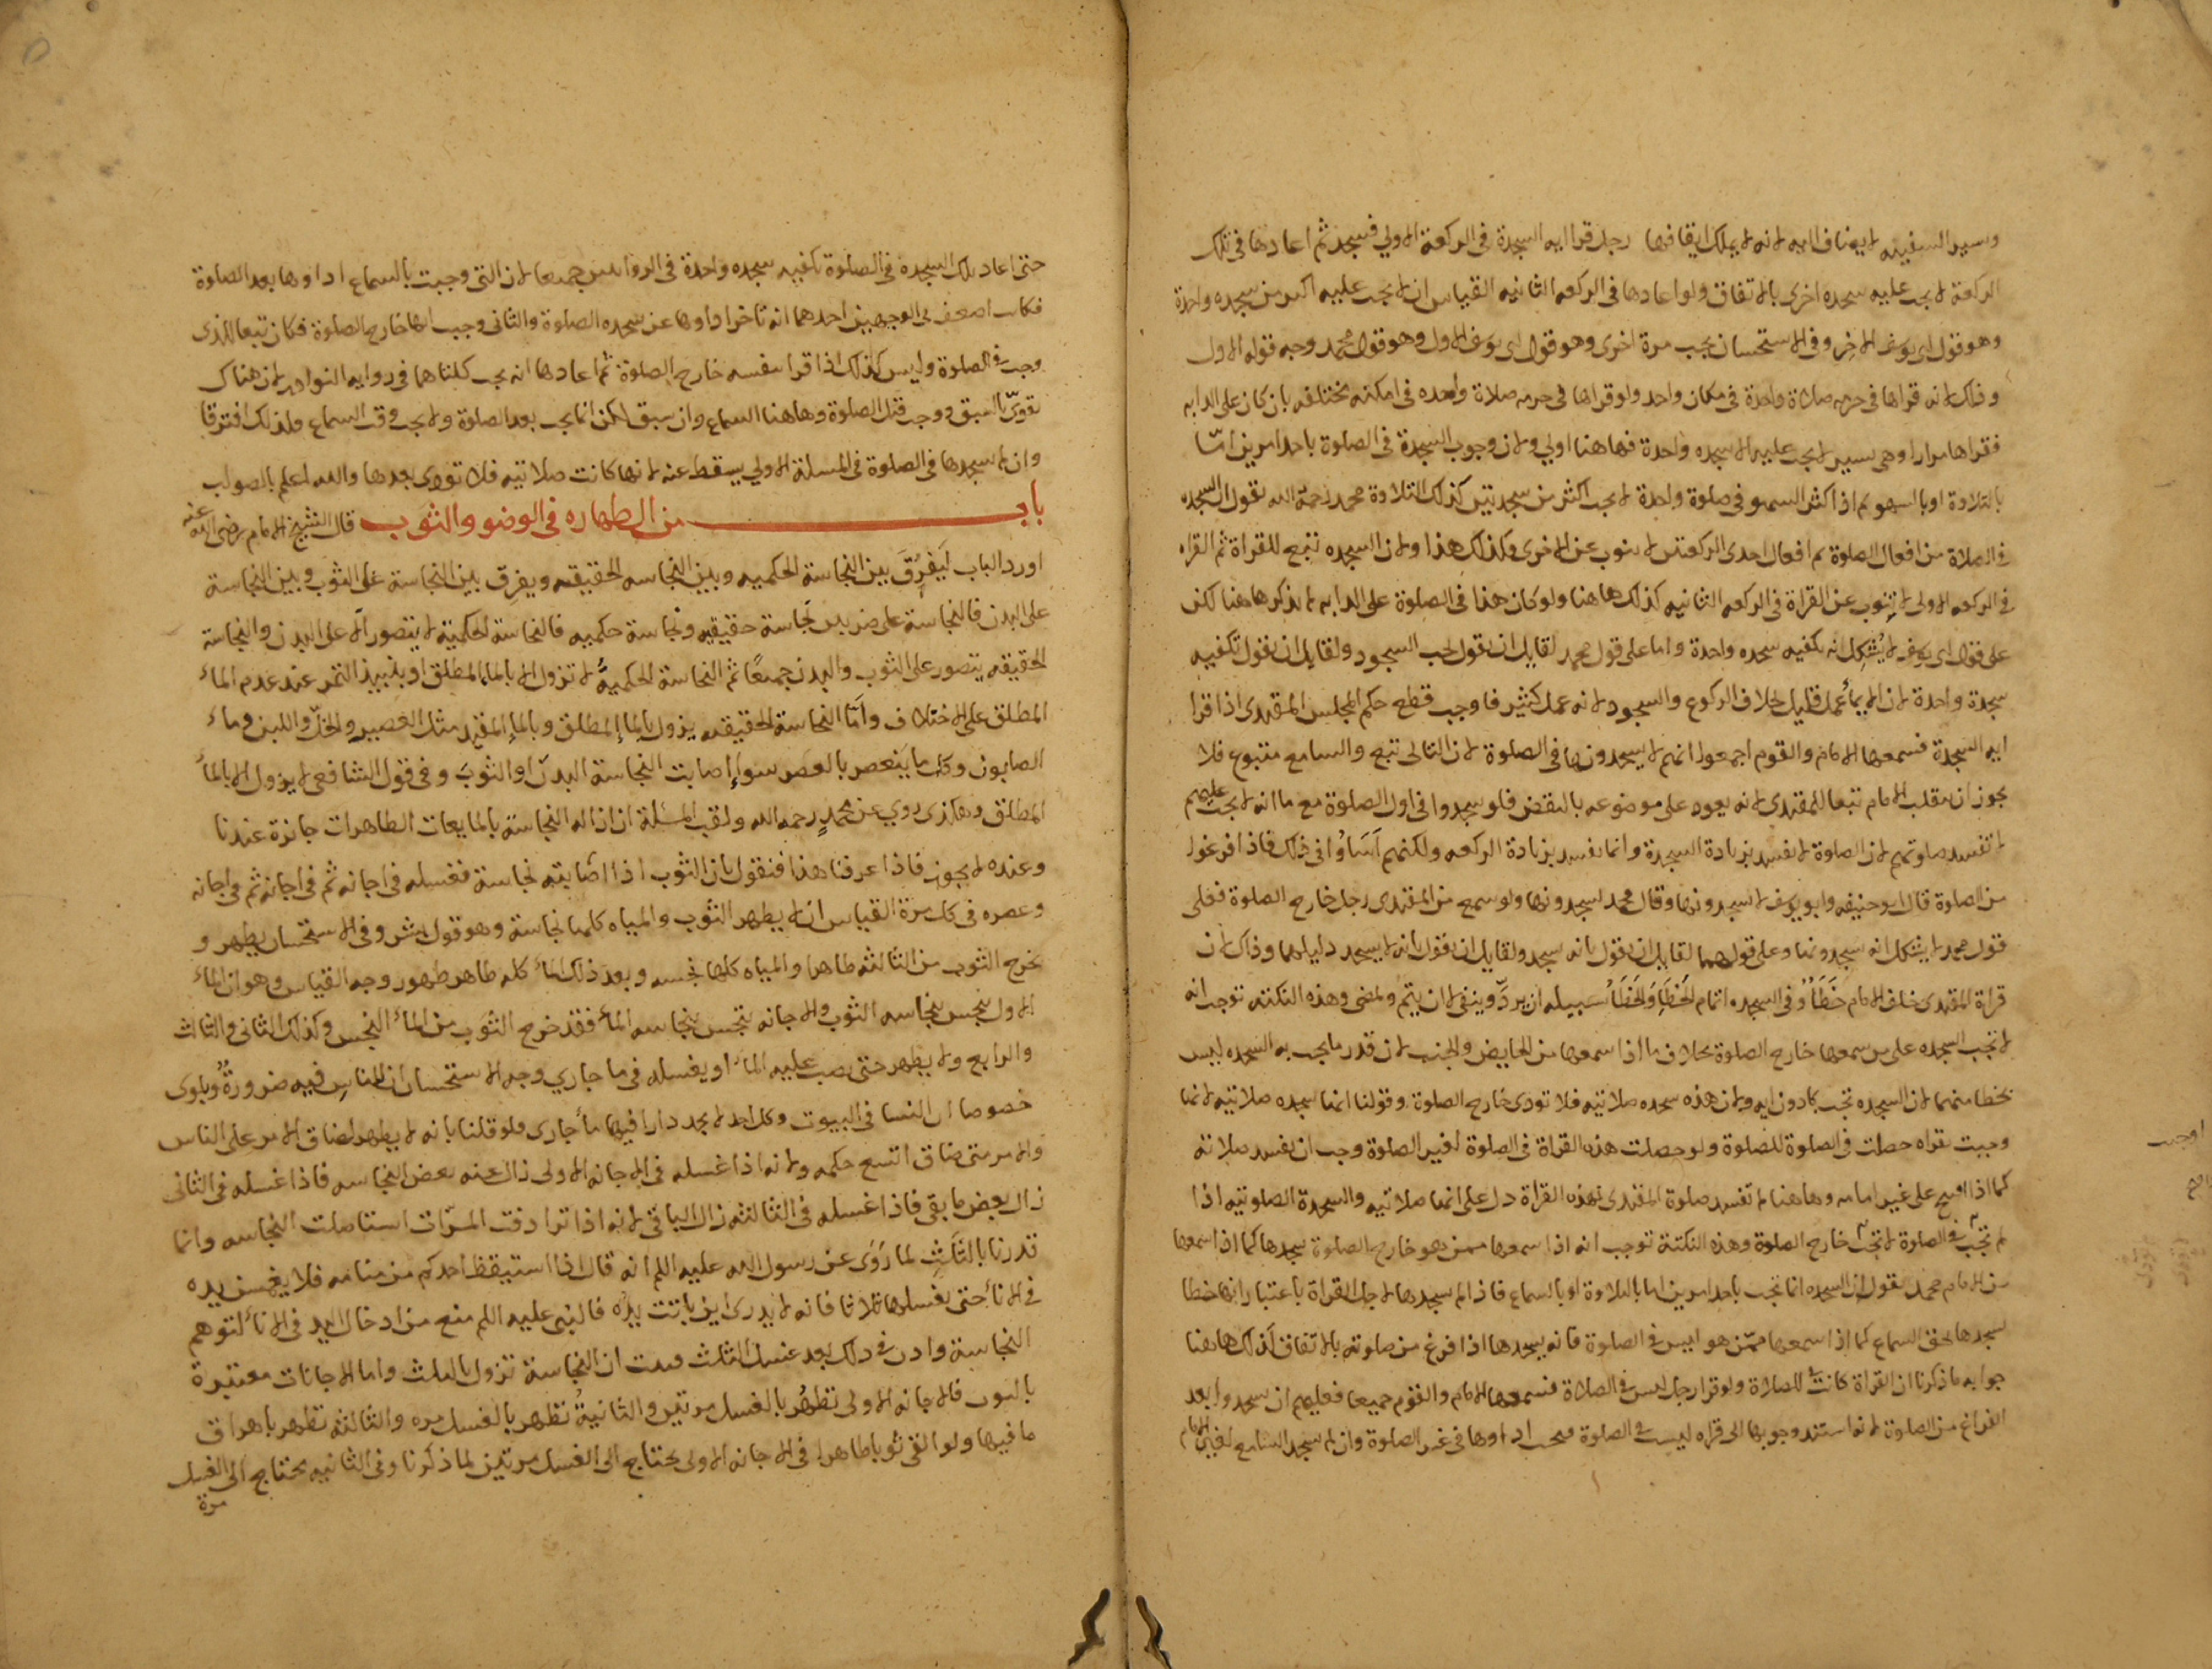 وسير السفينه لا يضاف اليه لانه لا يملك ايقافها رجل قرا ايه السجدة فى الركعة الاولي فسجد ثم اعادها فى تلك
الركعة لا يجب عليه سجده اخرى بالاتفاق ولو اعادها فى الركعه الثانيه القياس ان لا يجب عليه اكثر من سجده واحدة
وهو قول ابى يوسف الاخر وفى الاستحسان يجب مرة اخرى وهو قول ابى يوسف الاول وهو قول محمد وجه قوله الاول
وذلك لانه قراها فى حرمه صلاة واحدة فى مكان واحد ولو قراها فى حرمه صلاة واحده فى امكنه مختلفه بان كان على الدابه
فقراها مرارا وهى تسير لا يجب عليه الا سجده واحدة فهاهنا اولي ولان وجوب السجدة فى الصلوة باحد امرين امّا
بالتلاوة او بالسهو ثم اذا كثر السهو فى صلوة واحدة لا يجب اكثر من سجدتين كذلك التلاوة محمد رحمة الله يقول ان السجده
فى الصلاة من افعال الصلوة ثم افعال احدى الركعتين لا ينوب عن الاخرى وكذلك هذا ولان السجده تتبع للقراة ثم القراه
فى الركعه الاولى لا تنوب عن القراة فى الركعه الثانيه كذلك هاهنا ولو كان هذا فى الصلوة على الدابه لم يذكر هاهنا لكن
على قول ابى يوسف لا يُشكِل انه يكفيه سجده واحدة واما على قول محمد لقايل ان يقول يجب السجود ولقايل ان يقول تكفيه
سجدة واحدة لان الايمأ عمل قليل بخلاف الركوع والسجود لانه عمل كثير فاوجب قطع حكم المجلس المقتدى اذا قرا
ايه السجدة فسمعها الامام والقوم اجمعوا انهم لا يسجدونها فى الصلوة لان التالى تبع والسامع متبوع فلا
يجوز ان ينقلب الامام تبعا للمقتدى لانه يعود على موضوعه بالنقض فلو سجدوا فى اول الصلوة مع ما انه لا يجب عليهم
لا تفسد صلوتهم لان الصلوة لا تفسد بزيادة السجدة وانما تفسد بزيادة الركعه ولكنهم اَسَاوُا فى ذلك فاذا فرغوا
من الصلوة قال ابو حنيفه وابو يوسف لا يسجدونها وقال محمد يسجدونها ولو سمع من المقتدى رجل خارج الصلوة فعلى
قول محمد لا يشكل انه يسجدونها وعلى قولهما لقايل ان يقول بانه يسجد ولقايل ان يقول بانه لا يسجد دليلهما وذلك لان
قراة المقتدى خلف الامام خَطَأٌ وفى السجده اتمام الخَطَإِ وَالخَطَأُ سبيله ان يردّ وينفى لا ان يتم ويمضى وهذه النكته توجب انه
لا تجب السجده على من سمعها خارج الصلوة بخلاف ما اذا سمعها من الحايض والجنب لان قدر ما يجب به السجده ليس
بخطا منهما لان السجده تجب بما دون ايه ولان هذه سجده صلاتيه فلا تودى خارج الصلوة وقولنا انها سجده صلاتيه لانها
وجبت بقراه حصلت فى الصلوة للصلوة ولو حصلت هذه القراة فى الصلوة لغير الصلوة وجب ان تفسد صلاته
كما اذا افتتح على غير امامه وهاهنا لم تفسد صلوة المقتدى بهذه القراة دل على انها صلاتيه والسجدة الصلوتيه اذا
لم تجب فى الصلوة لا تجب خارج الصلوة وهذه النكتة توجب انه اذا سمعها ممن هو خارج الصلوة يسجدها كما اذا سمعها
من الامام محمد يقول ان السجده انما تجب باحد امرين اما بالتلاوة او بالسماع فاذا لم يسجدها لاجل القراة باعتبار انها خطا
يسجدها بحق السماع كما اذا سمعها ممّن هو ليس فى الصلوة فانه يسجدها اذا فرغ من صلوته بالاتفاق كذلك هاهنا
جوابه ما ذكرنا ان القراة كانت للصلاة ولو قرا رجل ليس فى الصلاة فسمعها الامام والقوم جميعا فعليهم ان يسجدوا بعد
الفراغ من الصلوة لانه استند وجوبها الى قراه ليست فى الصلوة فيجب اداوها فى غير الصلوة وان لم يسجد السامع لغيبة الامام
حتى اعاد تلك السجدة فى الصلوة تكفيه سجده واحدة فى الروايتين جميعا لان التى وجبت بالسماع اداوها بعد الصلوة
فكانت اضعف من الوجهين احدهما انه تاخر اداوها عن سجده الصلوة والثانى وجب ادا‌ها خارج الصلوة فكان تبعا للذى
وجب فى الصلوة وليس كذلك اذا قرا بنفسه خارج الصلوة ثم اعادها انه يجب كلتاهما فى روايه النوادر لان هناك
تقوىّ بالسبق ووجب قبل الصلوة وهاهنا السماع وان سبق لكن انما يجب بعد الصلوة ولا يجب وقت السماع فلذلك افترقا
وان لم يسجدها فى الصلوة فى المسلة الاولي يسقط عنه لانها كانت صلاتيه فلا تودى بعدها والله اعلم بالصواب
باب من الطهاره فى الوضو والثوب قال الشيخ الامام رضى الله عنه
اورد الباب ليَفرُقَ بين النجاسة الحكميه وبين النجاسه الحقيقه ويفرق بين النجاسة على الثوب وبين النجاسة
على البدن فالنجاسة على ضربين نجاسة حقيقيه ونجاسة حكميه فالنجاسة الحكمية لا يتصور الّا على البدن والنجاسة
الحقيقه يتصور على الثوب والبدن جميعًا ثم النجاسة الحكميةُ لا تزول الا بالمإ المطلق او بنبيذ التمر عند عدم المأ
المطلق على الاختلاف وامّا النجاسة الحقيقه يزول بالمإ المطلق وبالمإ المقيد مثل العصير والخلّ واللبن وما
الصابون وكل ما يَنعصر بالعصر سوا اصابت النجاسة البدن او الثوب وفى قول الشافعى لا يزول الا بالمأ
المطلق وهكذى روي عن محمدٍ رحمه الله ولقب المسئلة ان ازاله النجاسة بالمايعات الطاهرات جائزة عندنا
وعنده لا يجوز فاذا عرفنا هذا فنقول بان الثوب اذا اصابته نجاسة فغسله فى اجانه ثم فى اجانة ثم فى اجانه
وعصره فى كل مرة القياس ان لا يطهر الثوب والمياه كلها نجاسة وهو قول بشر وفى الاستحسان يطهر و
يخرج الثوب من الثالثه طاهرا والمياه كلها نجسه وبعد ذلك المأ كله طاهر طهور وجه القياس وهو ان المأ
الاول ينجس بنجاسه الثوب والاجانه يتنجس بنجاسه المأ فقد خرج الثوب من المأ النجس وكذلك الثانى والثالث
والرابع ولا يطهر حتى يصب عليه المأ او يغسله فى ما جاري وجه الاستحسان ان للناس فيه ضرورةً وبلوى
خصوصا ان النسا فى البيوت وكل احد لا يجد دارا فيها مأ جارى فلو قلنا بانه لا يطهر لضاق الامر على الناس
والامر متى ضاق اتسع حكمه ولانه اذا غسله فى الاجانه الاولى زال عنه بعض النجاسه فاذا غسله فى الثانى
زال بعض ما بقى فاذا غسله فى الثالثه زال الباقى لانه اذا ترادفت المرّات استاصلت النجاسه وانما
قدرنا بالثلَثِ لما رُوَى عن رسول الله عليه السلم انه قال اذا استيقظ احدكم من منامه فلا يغمسن يده
فى الانأ حتى يغسلها ثلاثا فانه لا يدرى اين باتت يده فالنبى عليه السلم منع من ادخال اليد فى الانأ لتوهم
النجاسة واذن فى ذلك بعد غسل الثلث فبيت ان النجاسة تزول بالثلث واما الاجانات معتبرة
بالثوب فالاجانه الاولى تطهُر بالغسل مرتين والثانيةُ تطهر بالغسل مره والثالثه تطهر باهراق
ما فيها ولو القى ثوبا طاهرا فى الاجانه الاولى يحتاج الى الغسل مرتين لما ذكرنا وفى الثانيه يحتاج الى الغسل
مرة